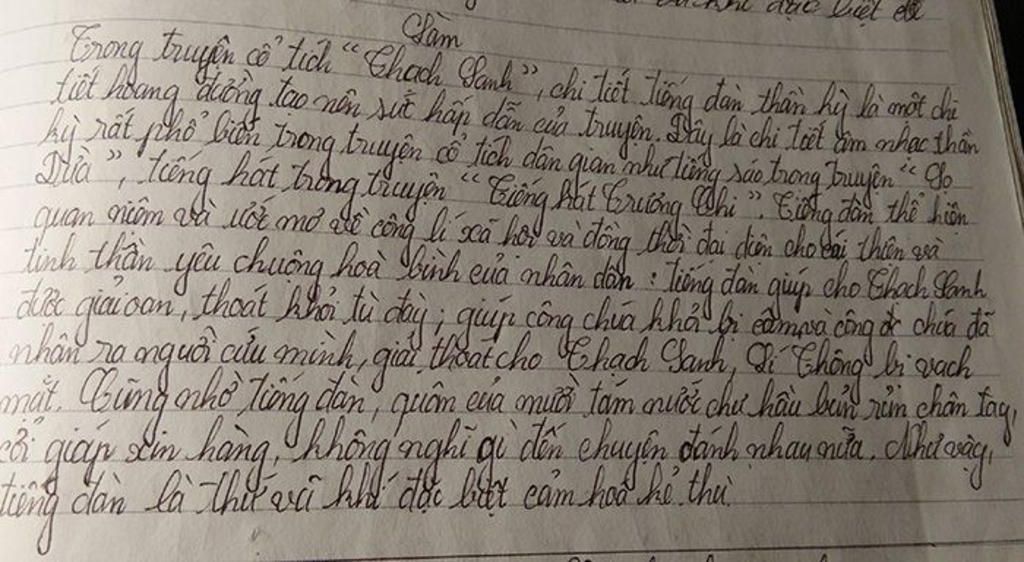 đặc biệt để
Làm
Trong truyện cổ tích "Thạch Sanh", chi tiết tiếng đàn thần kỳ là một chi
tiết hoang đường tạo nên sức hấp dẫn của truyện. Đây là chi tiết âm nhạc thần
kỳ rất phổ biến trong truyện cổ tích dân gian như tiếng sáo trong truyện "Sọ
Dừa", tiếng hát trong truyện "Tiếng hát Trương Chi". Tiếng đàn thể hiện
quan niệm và ước mơ về công lí xã hội và đồng thời đại diện cho cái thiện và
tinh thần yêu chuộng hoà bình của nhân dân: tiếng đàn giúp cho Thạch Sanh
được giải oan, thoát khỏi tù đày; giúp công chúa khỏi bị câm và công chúa đã
nhận ra người cứu mình, giải thoát cho Thạch Sanh, Lí Thông bị vạch
mặt. Cũng nhờ tiếng đàn, quân của mười tám nước chư hầu bủn rủn chân tay,
cởi giáp xin hàng, không nghĩ gì đến chuyện đánh nhau nữa. Như vậy,
tiếng đàn là thứ vũ khí đặc biệt cảm hoá kẻ thù.